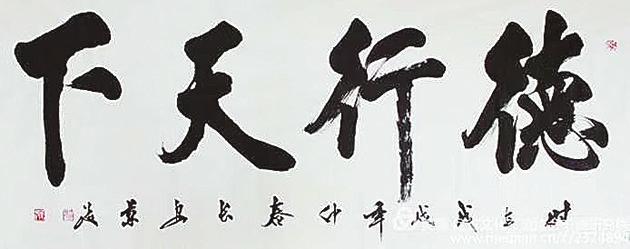 德行天下
时在戊戌年仲春长安景